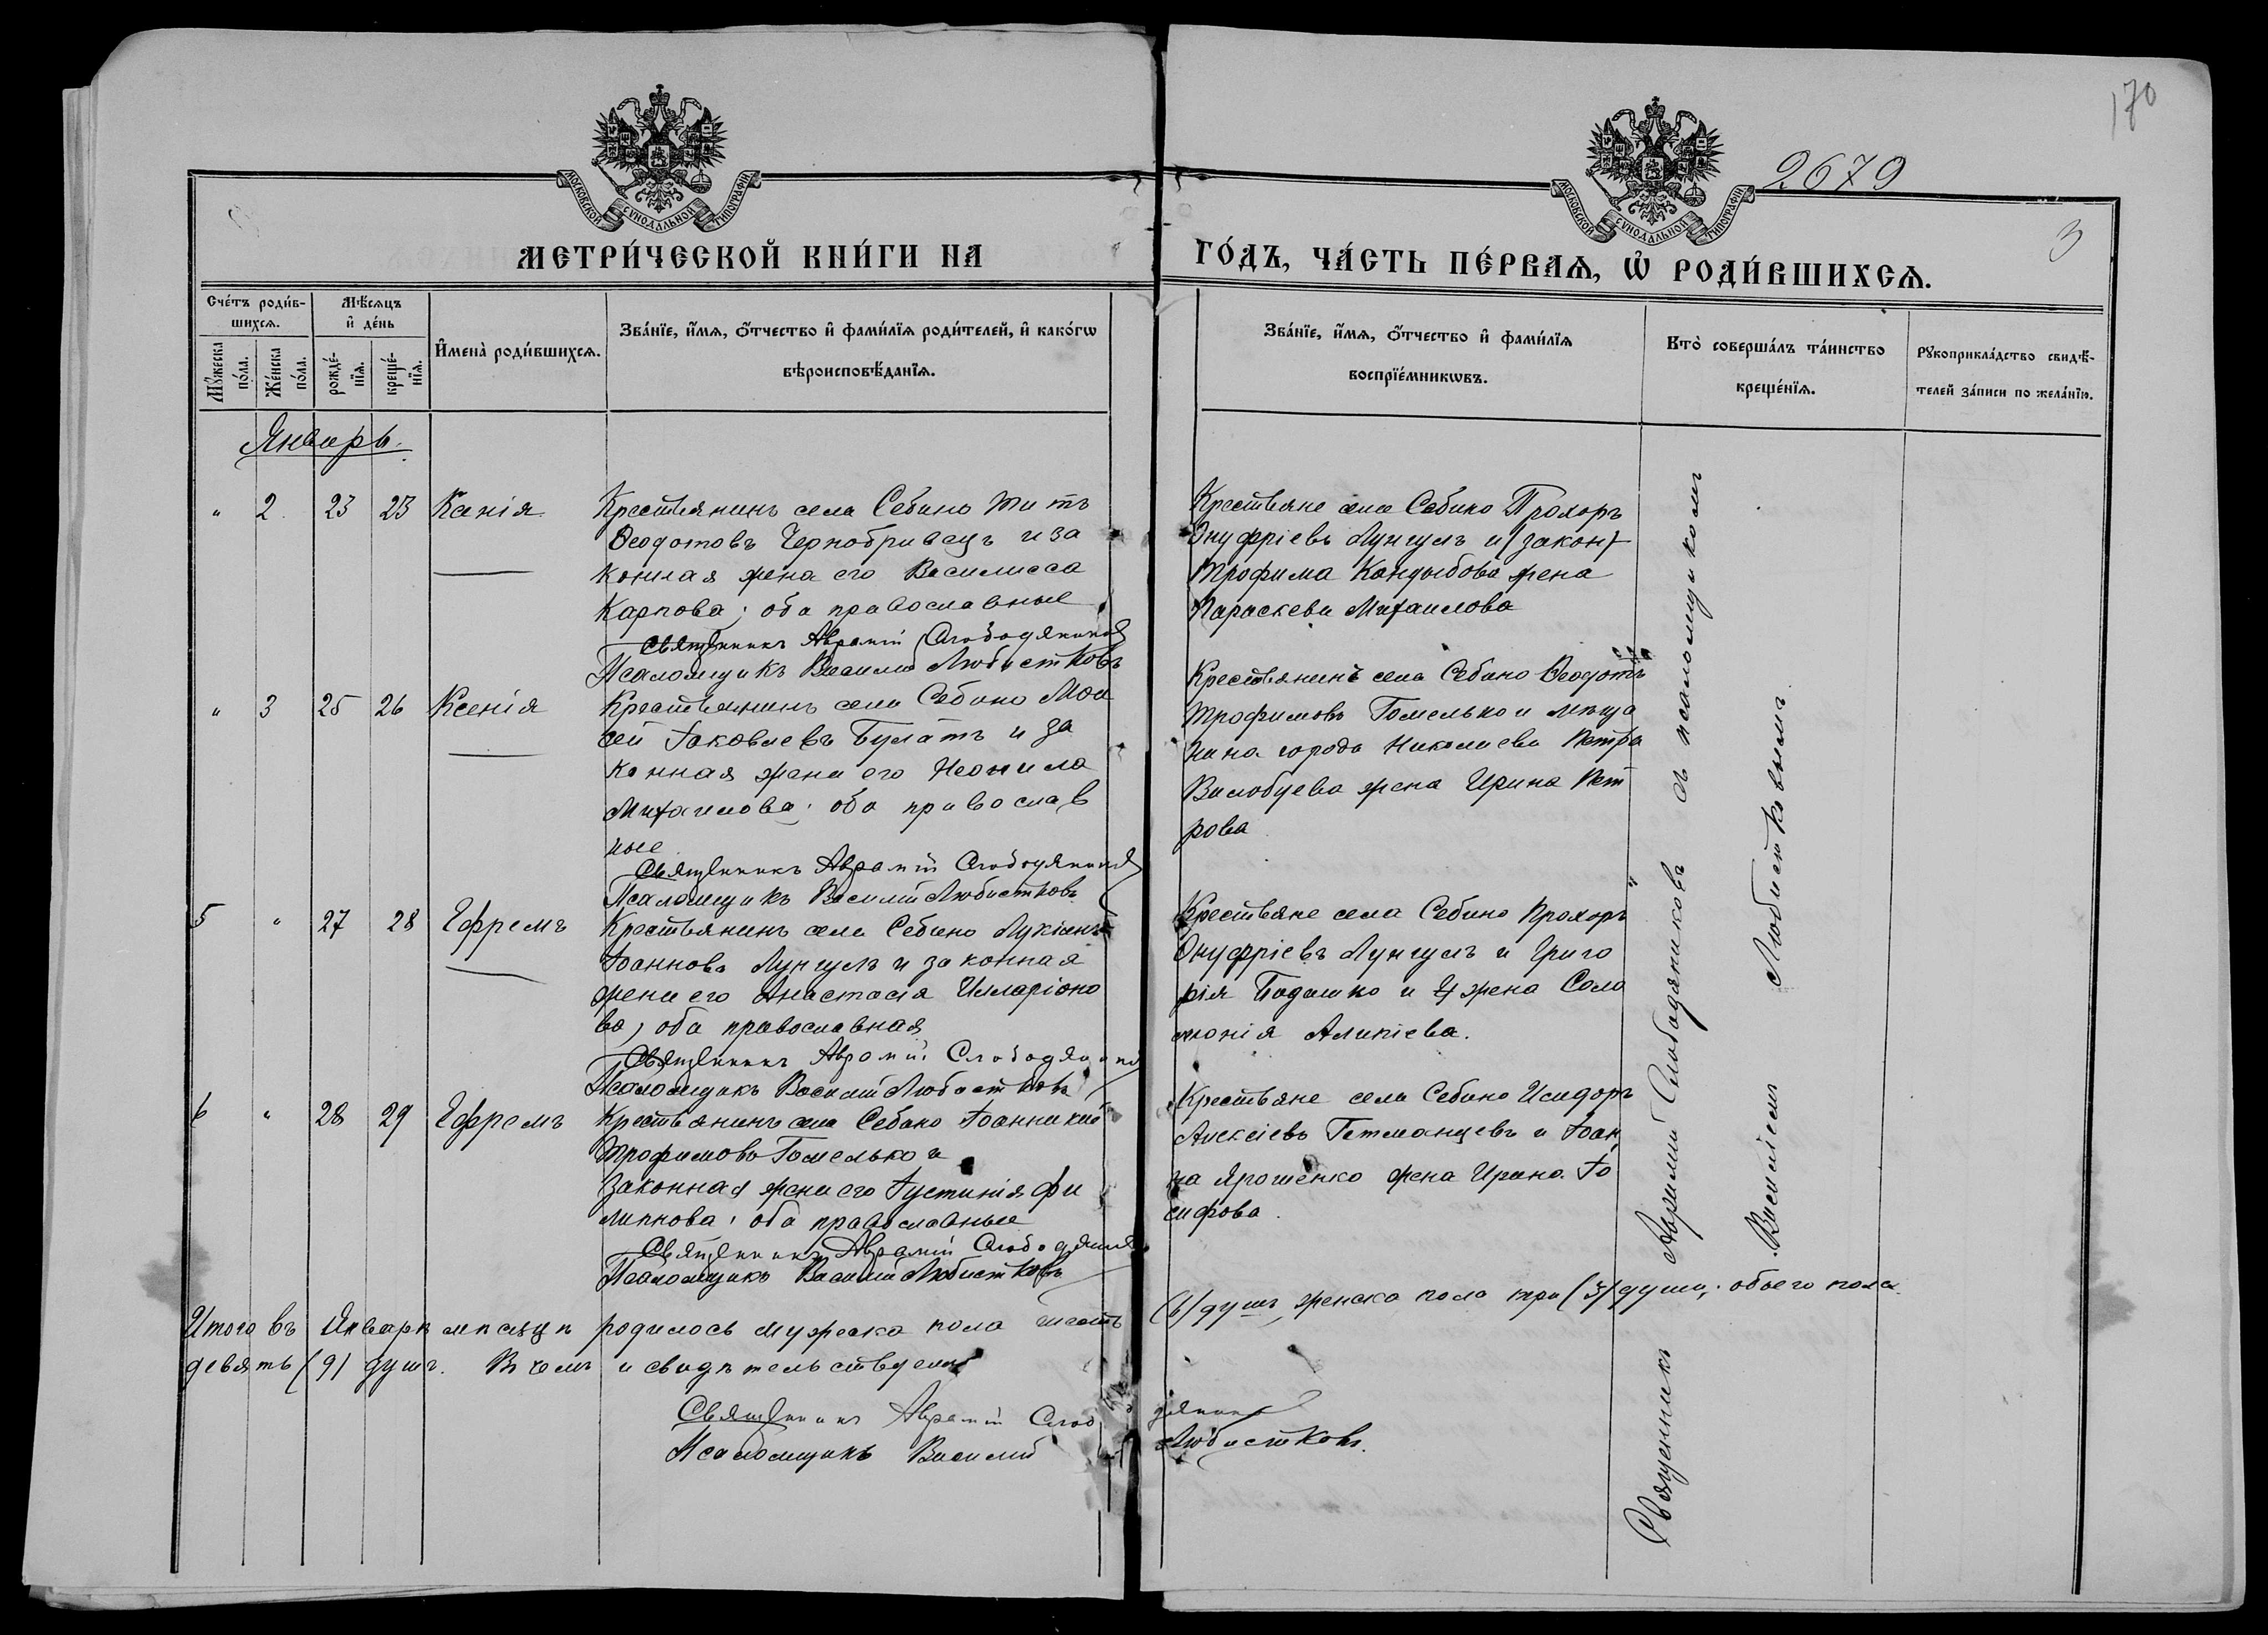 170
2679
3
МОСКОВСКОЙ СѴНОДАЛЬНОЙ ТИПОГРАФІИ
МОСКОВСКОЙ СѴНОДАЛЬНОЙ ТИПОГРАФІИ
МЕТРИ́ЧЕСКОЙ КНИ́ГИ НА
ГО́ДЪ, ЧА́СТЬ ПЕ́РВАЯ, Ѡ РОДИ́ВШИХСЯ.
Сче́тъ роди́в-
шихся.
Мѣ́сяцъ
и де́нь
Му́жеска
по́ла.
Же́нска
по́ла.
рожде́-
нїя.
креще́-
нїя.
Имена̀ роди́вшихся.
Зва́нїе, и́мя, о́тчество и фами́лїя роди́телей, и како́гѡ
вѣроисповѣ́данїя.
Зва́нїе, и́мя, о́тчество и фами́лїя
воспрїе́мникѡвъ.
Кто̀ соверша́лъ та́инство
креще́нїя.
Рукоприкла́дство свидѣ́-
телей за́писи по жела́нїю.
Январь.
" 2. 23 23 Ксенія
Крестьянинъ села Себино Титъ
Ѳеодотовъ Чернобривецъ и за
конная жена его Василисса
Карпова; оба православные
Священникъ Аврамій Слободяниковъ
Псаломщикъ Василій Любистковъ
Крестьяне села Себино Прохоръ
Онуфріевъ Лунгулъ и (закон)
Трофима Кандыбова жена
Параскева Михаилова
" 3 25 26 Ксенія
Крестьянинъ села Себино Мои
сей Іаковлевъ Булатъ и за
конная жена его Неонила
Михаилова; оба православ
ные
Священникъ Аврамій Слободяниковъ
Псаломщикъ Василій Любистковъ
Крестьянинъ села Себино Ѳеодотъ
Трофимовъ Гомелько и мѣща
нина города Николаева Петра
жена Ирина Пет
рова
5 " 27 28 Ефремъ
Крестьянинъ села Себино Лукіанъ
Іоанновъ Лунгулъ и законная
жена его Анастасія Илларіоно
ва; оба православная
Священникъ Аврамій Слободяниковъ
Псаломщикъ Василій Любистковъ
Крестьяне села Себино Прохоръ
Онуфріевъ Лунгулъ и Григо
рія и жена Соло
монія Алипіева.
6 " 28 29 Ефремъ
Крестьянинъ села Себино Іоанникій
Трофимовъ Гомелько и
законная жена его Іустинія Фи
липпова; оба православные
Священникъ Аврамій Слободяниковъ
Псаломщикъ Василій Любистковъ
Крестьяне села Себино Исидоръ
Алексіевъ Гетманцевъ и Іоан
на Ярошенко жена Ирина Іо
сифова.
Священникъ Аврамій Слободяниковъ съ псаломщикомъ
Василіемъ Любистковымъ
Итого въ Январѣ мѣсяцѣ родилось мужеска пола шесть (6) душъ, женска пола три (3) души; обоего пола
девять (9) душъ. Въ чемъ и свидѣтельствуемъ
Священникъ Аврамій Слободяниковъ
Псаломщикъ Василій Любистковъ.